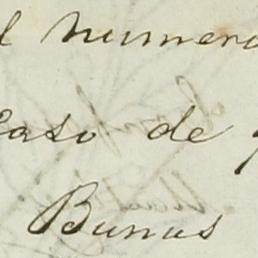 l numero
Caso de
Bunus